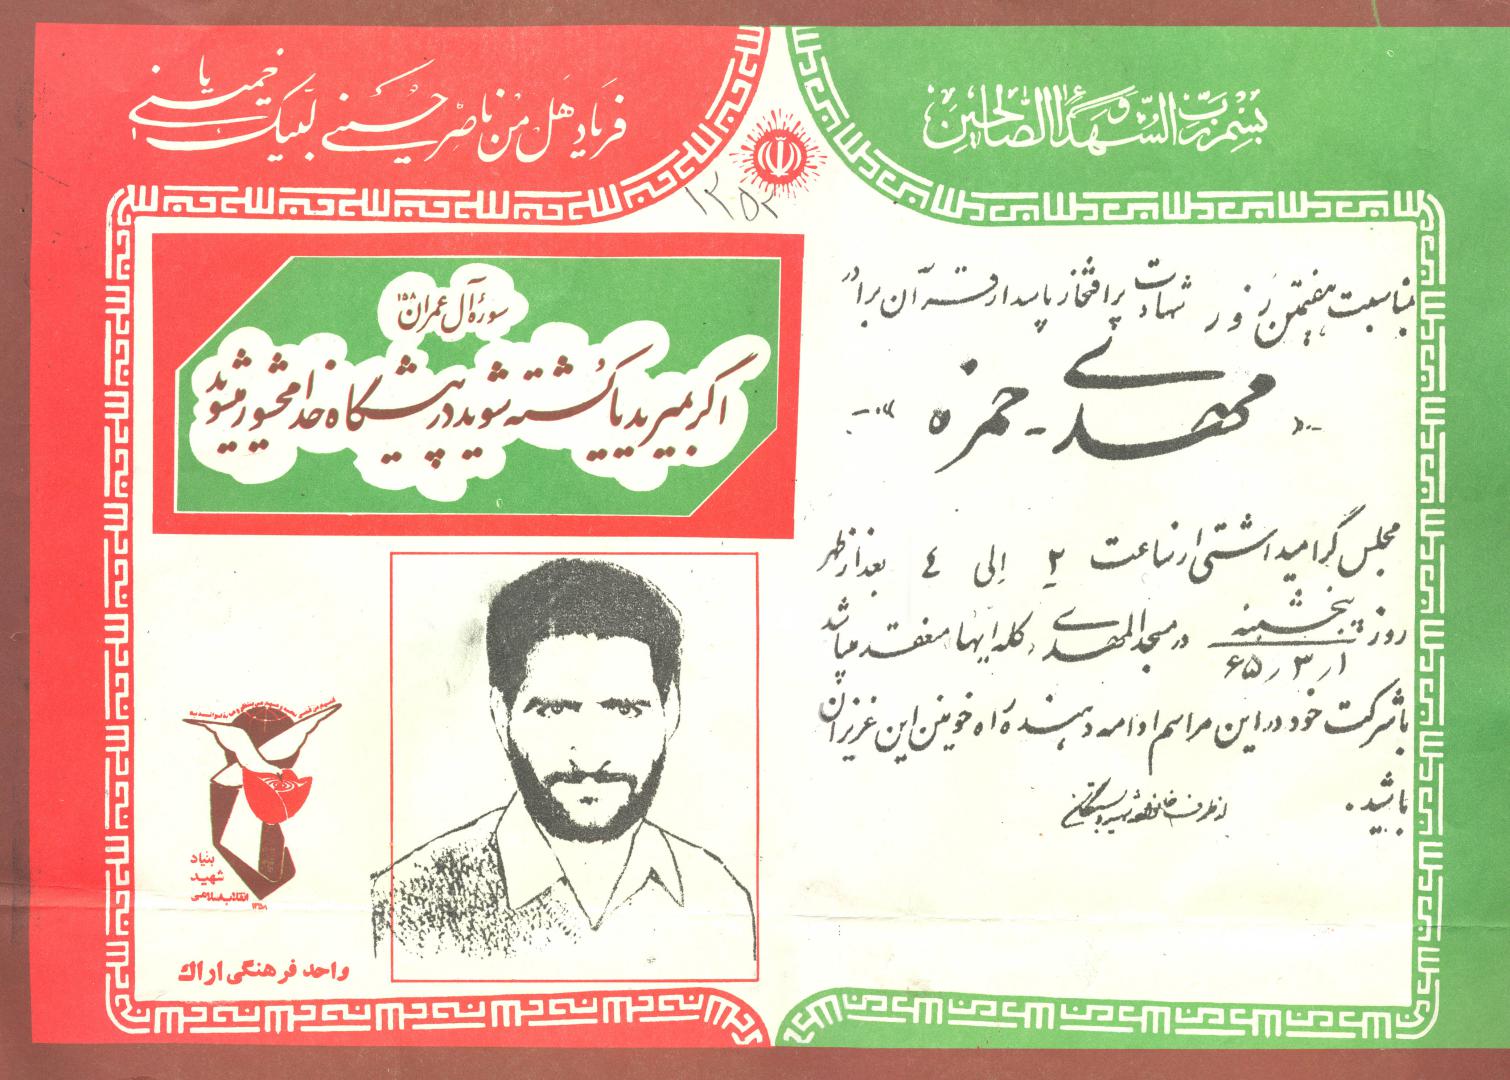 بسم رب الشهدأ و الصالحین
فریاد هل من ناصر حسینی لبیک یا خمینی
۱۲۵۲
سورهٔ آل عمران ۱۵۸
اگر بمیرید یا کشته شوید در پیشگاه خدا محشور میشوید
بمناسبت هفتمین روز شهادت پرافتخار پاسدار قرآن برادر
مهدی - حمزه
مجلس گرامیداشتی از ساعت ۲ الی ۴ بعد از ظهر
روز پنجشنبه ۱ر۳ر۶۵ در مسجد المهدی کله ایها منعقد میباشد
با شرکت خود در این مراسم ادامه دهنده راه خونین این عزیزان
باشید.
از طرف خانواده
بنیاد
شهید
انقلاب اسلامی
۱۳۵۸
واحد فرهنگی اراک